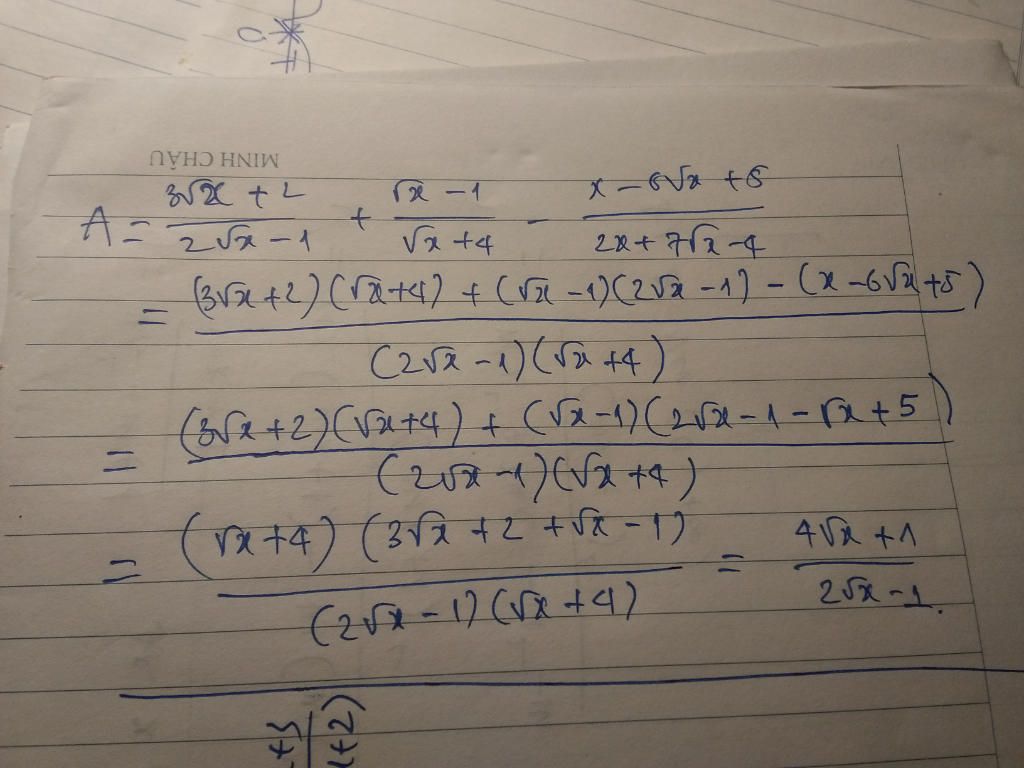 MINH CHÂU
A = \frac{3\sqrt{x} + 2}{2\sqrt{x} - 1} + \frac{\sqrt{x} - 1}{\sqrt{x} + 4} - \frac{x - 6\sqrt{x} + 5}{2x + 7\sqrt{x} - 4}
= \frac{(3\sqrt{x} + 2)(\sqrt{x} + 4) + (\sqrt{x} - 1)(2\sqrt{x} - 1) - (x - 6\sqrt{x} + 5)}{(2\sqrt{x} - 1)(\sqrt{x} + 4)}
= \frac{(3\sqrt{x} + 2)(\sqrt{x} + 4) + (\sqrt{x} - 1)(2\sqrt{x} - 1 - \sqrt{x} + 5)}{(2\sqrt{x} - 1)(\sqrt{x} + 4)}
= \frac{(\sqrt{x} + 4)(3\sqrt{x} + 2 + \sqrt{x} - 1)}{(2\sqrt{x} - 1)(\sqrt{x} + 4)} = \frac{4\sqrt{x} + 1}{2\sqrt{x} - 1}.
+3
+2)